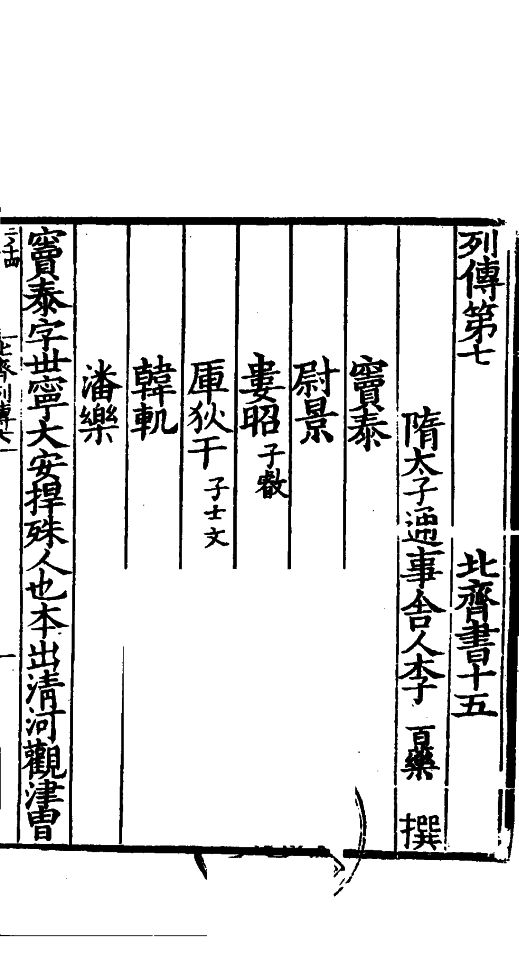 列傳第七 北齊書十五
隋太子通事舍人李 百藥 撰
竇泰
尉景
婁昭 子叡
厙狄干 子士文
韓軌
潘樂
竇泰字世寧大安捍殊人也本出清河觀津曾